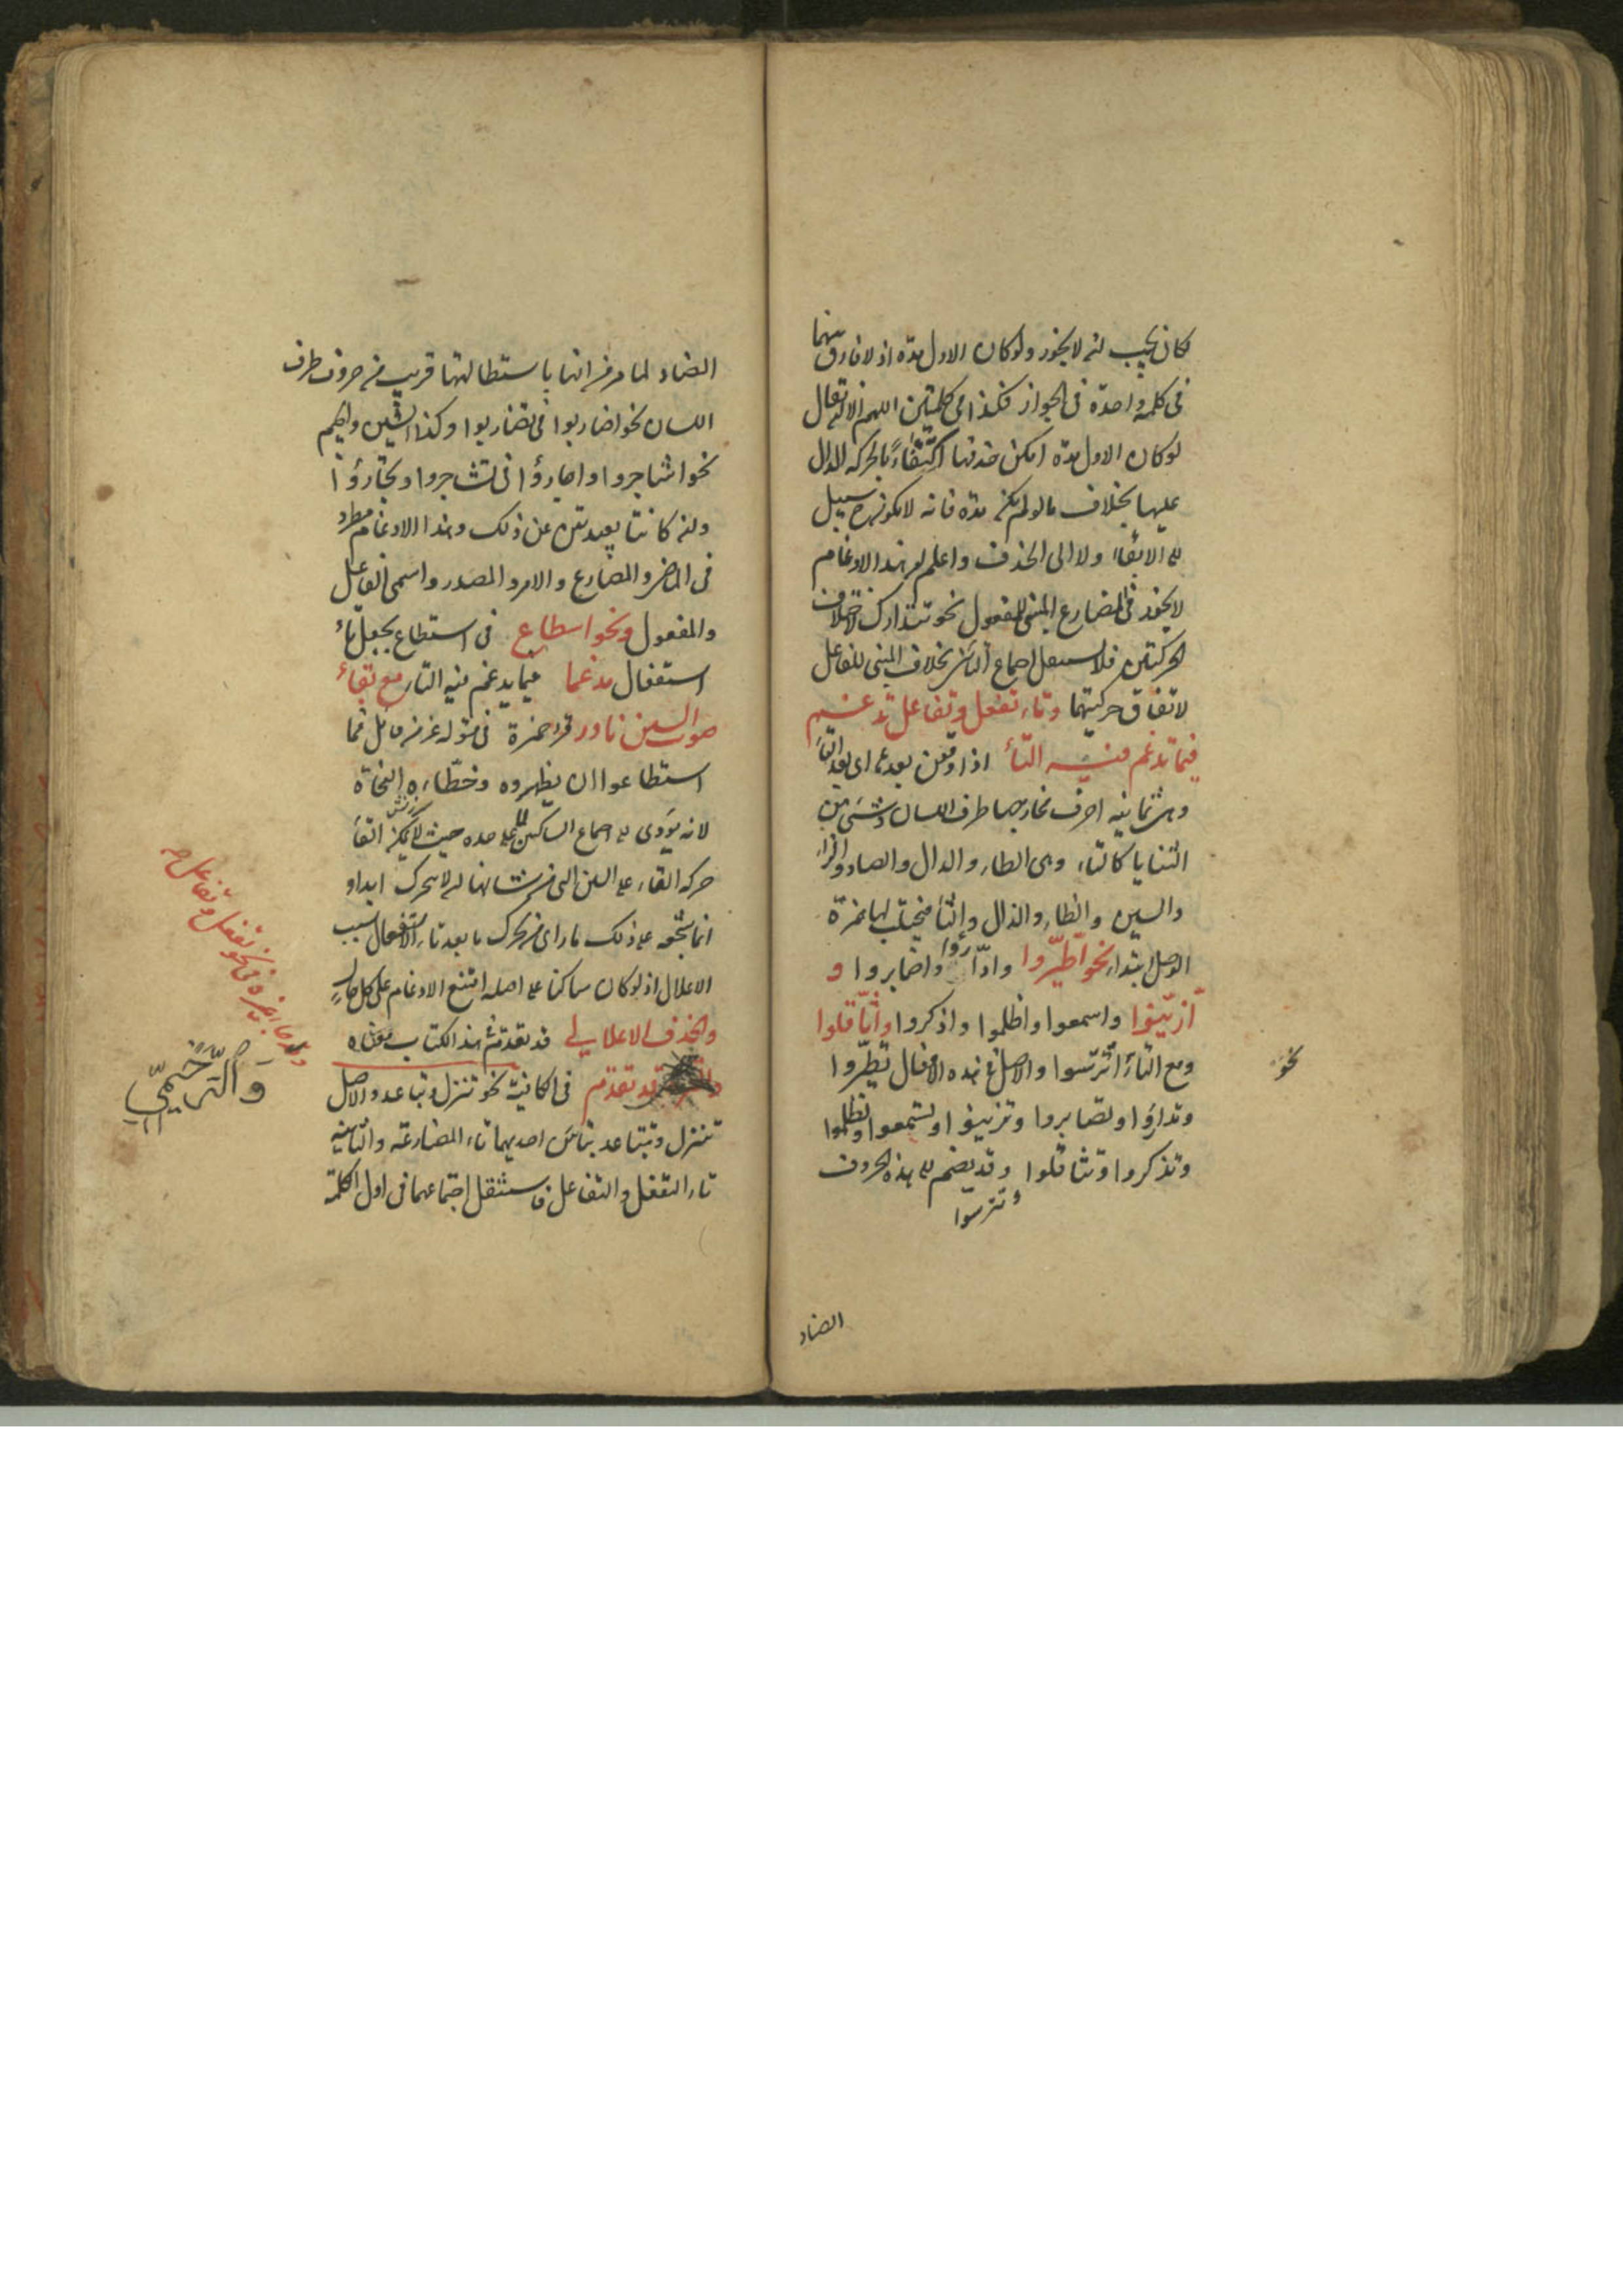 كان يجب ان لا يجوز ولو كان الاول مدة اذ لا فارق بينهما
فى كلمة واحدة فى الجواز فكذا فى كلمتين اللهم الا ان يقال
لو كان الاول مدة امكن حذفها اكتفاءً بالحركة الدال
عليها بخلاف ما لو لم يكن مدة فانه لا يكون سبيل
الى الابقاء ولا الى الحذف واعلم ان هذا الادغام
لا يجوز فى المضارع المبنى للمفعول نحو تتدارك لاختلاف
الحركتين فلا يستثقل اجتماع التائين بخلاف المبنى للفاعل
لاتفاق حركتيهما وتاء تفعل وتفاعل تدغم
فيما تدغم فيه التاء اذا وقعن بعدها اى بعد التاء
وهى ثمانية احرف مخارجها طرف اللسان وشىء من
الثنايا كالتاء وهى الطاء والدال والصاد والزاء
والسين والظاء والذال والثاء فيجتلب لها همزة
الوصل ابتداء نحو اطيروا وادّارؤا واصابروا و
ازينوا واسمعوا واظلموا واذكروا واثاقلوا
ومع التاء اترسوا والاصل فى هذه الافعال تطيروا
وتدارؤا وتصابروا وتزينوا وتسمعوا وتظلموا
وتذكروا وتثاقلوا وقد يضم الى هذه الحروف
وتترسوا
نحو
الضاد
الضاد لما مر من انها باستطالتها قريب من حروف طرف
اللسان نحو اضاربوا فى تضاربوا وكذا الشين والجيم
نحو اشاجروا واجارؤا فى تشاجروا وتجارؤا
وان كانتا بعيدتين عن ذلك وهذا الادغام مطرد
فى الماضى والمضارع والامر والمصدر واسمى الفاعل
والمفعول ونحو اسطاع فى استطاع بجعل تاء
استفعال مدغما فيما يدغم فيه التاء مع بقاء
صوت السين نادر قرأ حمزة فى قوله عز من قائل فما
استطاعوا ان يظهروه وخطاءه النحاة
لانه يؤدى الى اجتماع الساكنين لا على حده حيث لا يمكن القاء
حركة التاء على السين التى من شانها ان لا تتحرك ابدا و
انما شجعه على ذلك ما راى من تحرك ما بعد تاء الاستفعال بسبب
الاعلال اذ لو كان ساكنا على اصله امتنع الادغام على كل حال
والحذف الاعلالى قد تقدم هذا الكتاب
قد تقدم فى الكافية نحو تنزل وتباعد والاصل
تتنزل وتتباعد بتائين احديهما تاء المضارعة والثانية
تاء التفعل والتفاعل فاستثقل اجتماعهما فى اول الكلمة
وقد جاء غيره فى نحو تفعل وتفاعل
والترخيمى